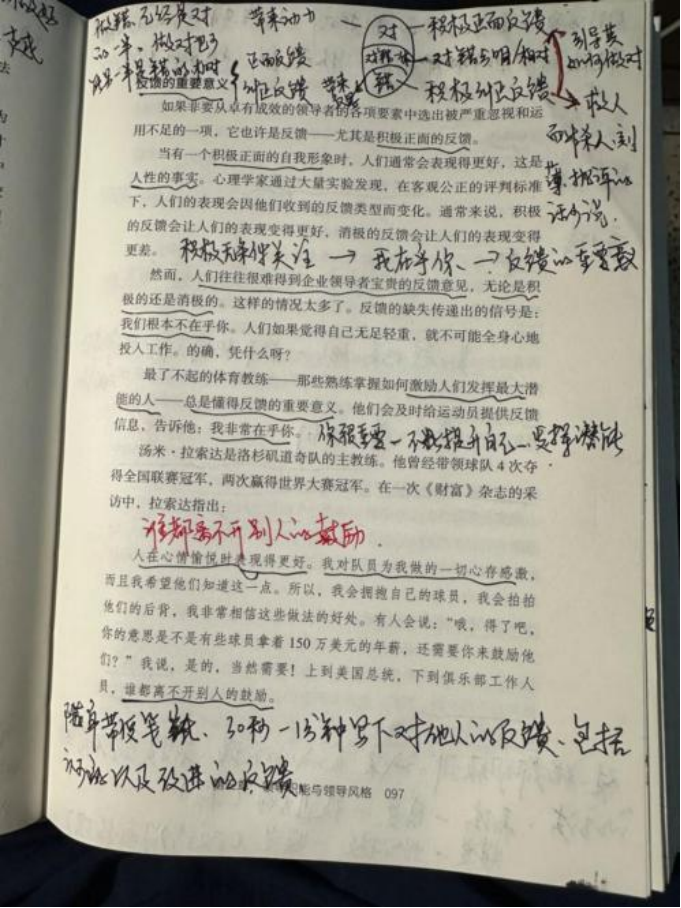 带来动力
对
积极正面反馈
引导其
如何做对
正面反馈
对错分明/相对
错
积极纠正反馈
救人
反馈的重要意义
如果非要从卓有成效的领导者的各项要素中选出被严重忽视和运
用不足的一项，它也许是反馈——尤其是积极正面的反馈。
当有一个积极正面的自我形象时，人们通常会表现得更好，这是
人性的事实。心理学家通过大量实验发现，在客观公正的评判标准
下，人们的表现会因他们收到的反馈类型而变化。通常来说，积极
的反馈会让人们的表现变得更好，消极的反馈会让人们的表现变得
更差。
积极无条件关注 → 我在乎你、→ 反馈的重要意义
然而，人们往往很难得到企业领导者宝贵的反馈意见，无论是积
极的还是消极的。这样的情况太多了。反馈的缺失传递出的信号是：
我们根本不在乎你。人们如果觉得自己无足轻重，就不可能全身心地
投入工作。的确，凭什么呀？
最了不起的体育教练——那些熟练掌握如何激励人们发挥最大潜
能的人——总是懂得反馈的重要意义。他们会及时给运动员提供反馈
信息，告诉他：我非常在乎你。
你很重要—不断提升自己—发挥潜能
汤米·拉索达是洛杉矶道奇队的主教练。他曾经带领球队4次夺
得全国联赛冠军，两次赢得世界大赛冠军。在一次《财富》杂志的采
访中，拉索达指出：
谁都离不开别人的鼓励
人在心情愉悦时表现得更好。我对队员为我做的一切心存感激，
而且我希望他们知道这一点。所以，我会拥抱自己的球员，我会拍拍
他们的后背，我非常相信这些做法的好处。有人会说：“哦，得了吧，
你的意思是不是有些球员拿着150万美元的年薪，还需要你来鼓励他
们？”我说，是的，当然需要！上到美国总统，下到俱乐部工作人
员，谁都离不开别人的鼓励。
随身带便笔纸、30秒一1分钟写下对他人的反馈、包括
认可以及改进的反馈
能与领导风格 097